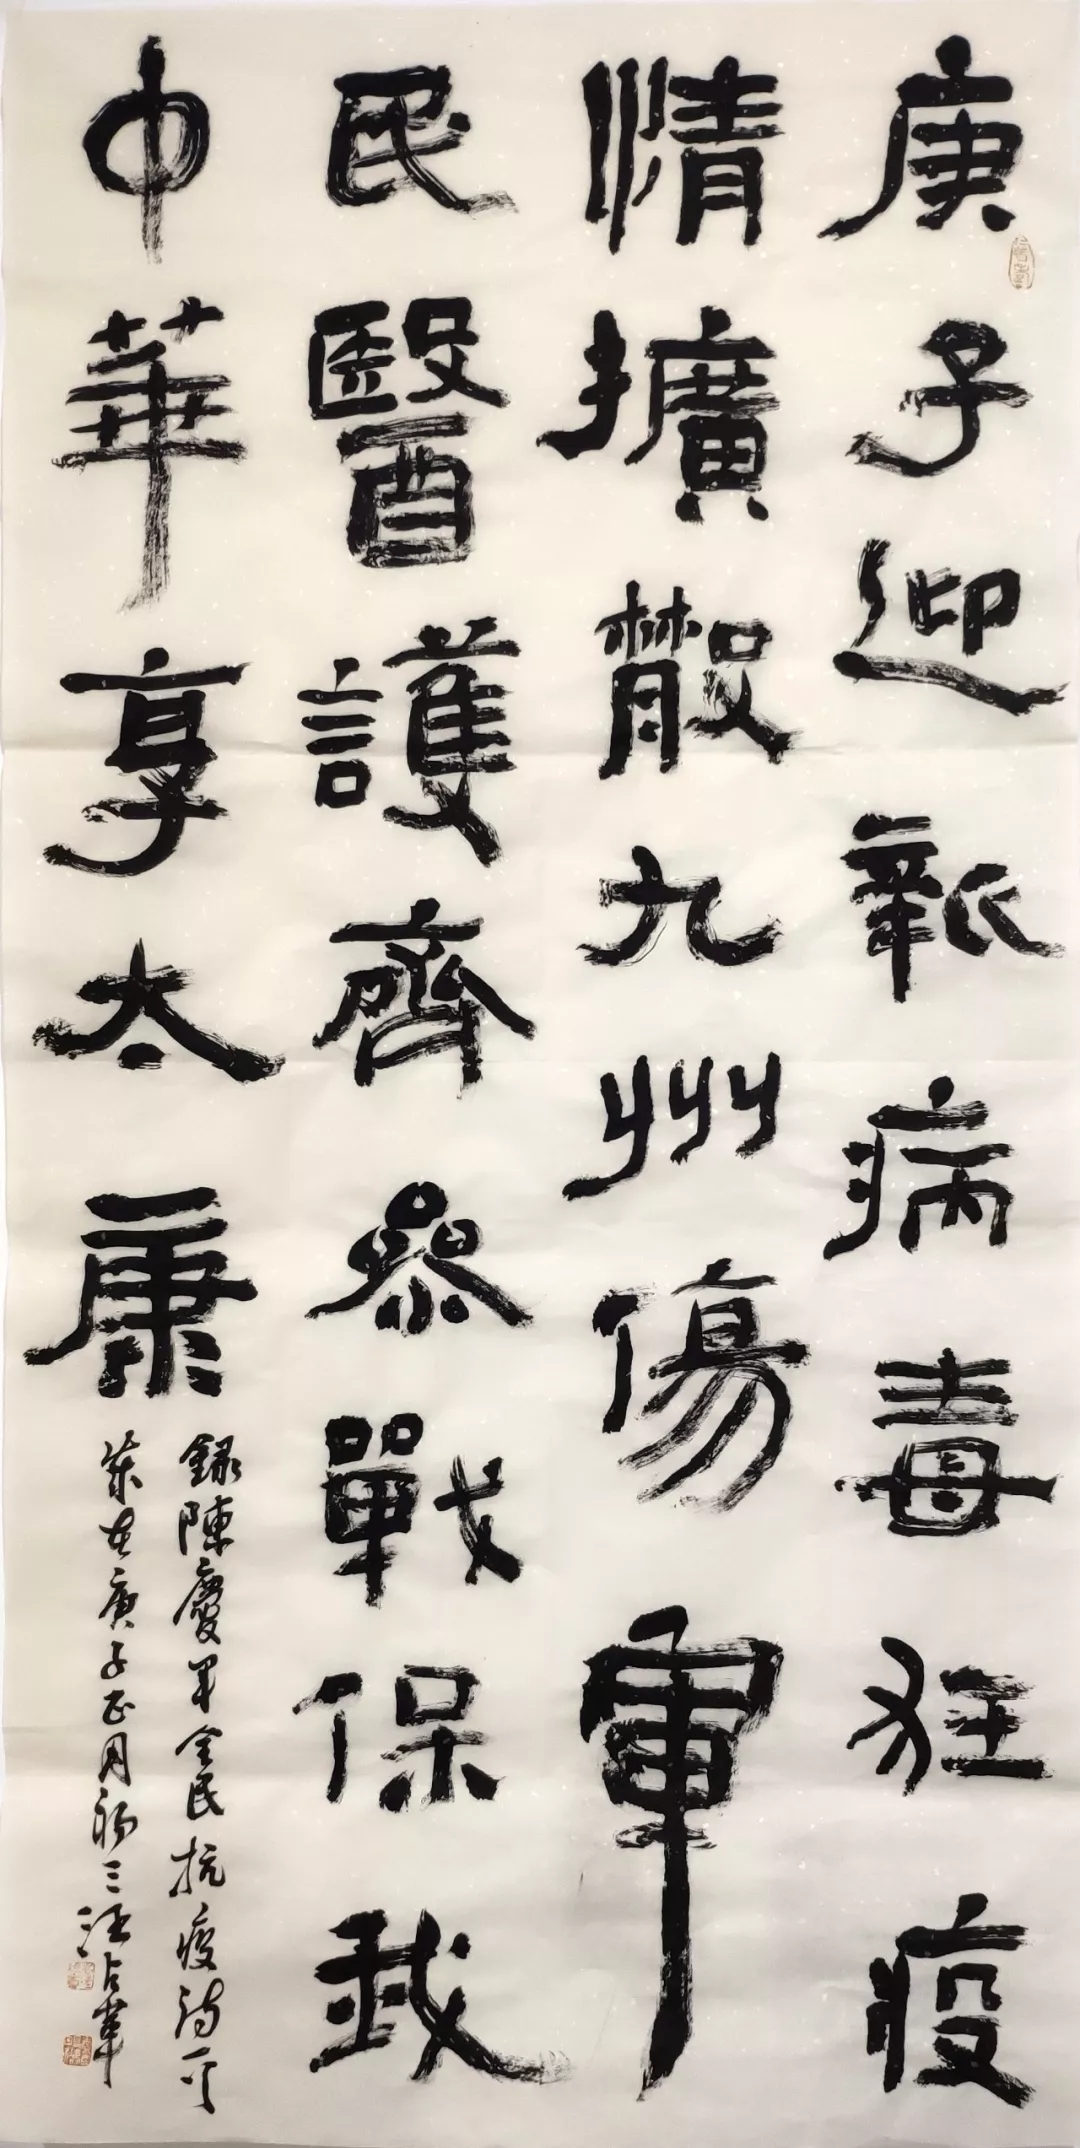 庚子迎新病毒狂疫
情擴散九州傷軍
民醫護齊參戰保我
中華享太康
錄陳慶軍全民抗疫詩一首
歲在庚子正月初三汪占軍